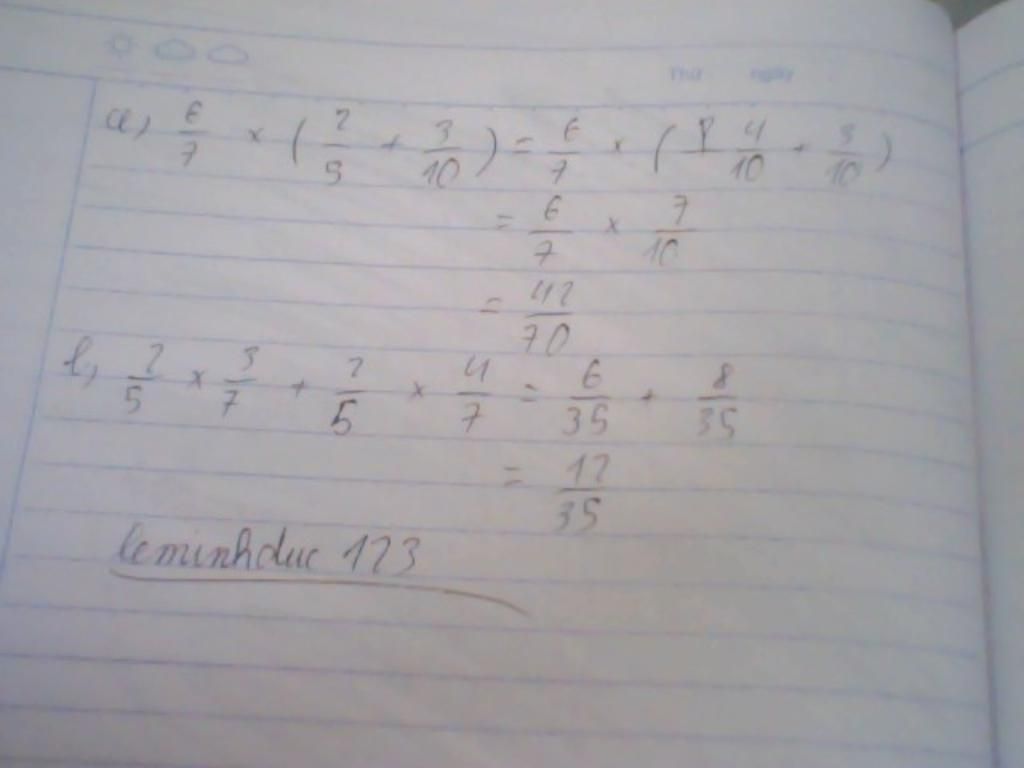 Thứ ngày
a, 6/7 × (2/5 + 3/10) = 6/7 × (4/10 + 3/10)
= 6/7 × 7/10
= 42/70
b, 2/5 × 3/7 + 2/5 × 4/7 = 6/35 + 8/35
= 12/35
leminhduc 123